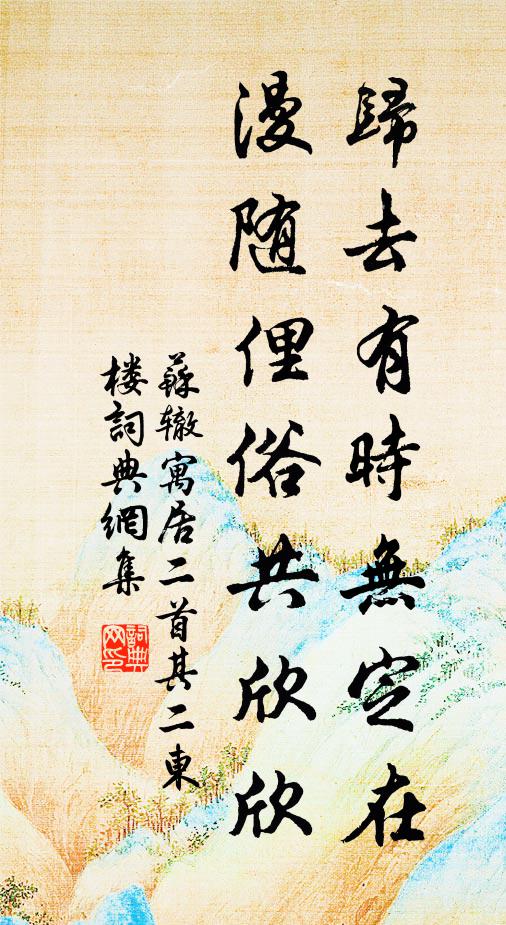 歸去有時無定在
漫随俚俗共欣欣
蘇辙寓居二首其二東
楼詞典網集
詞典
网印